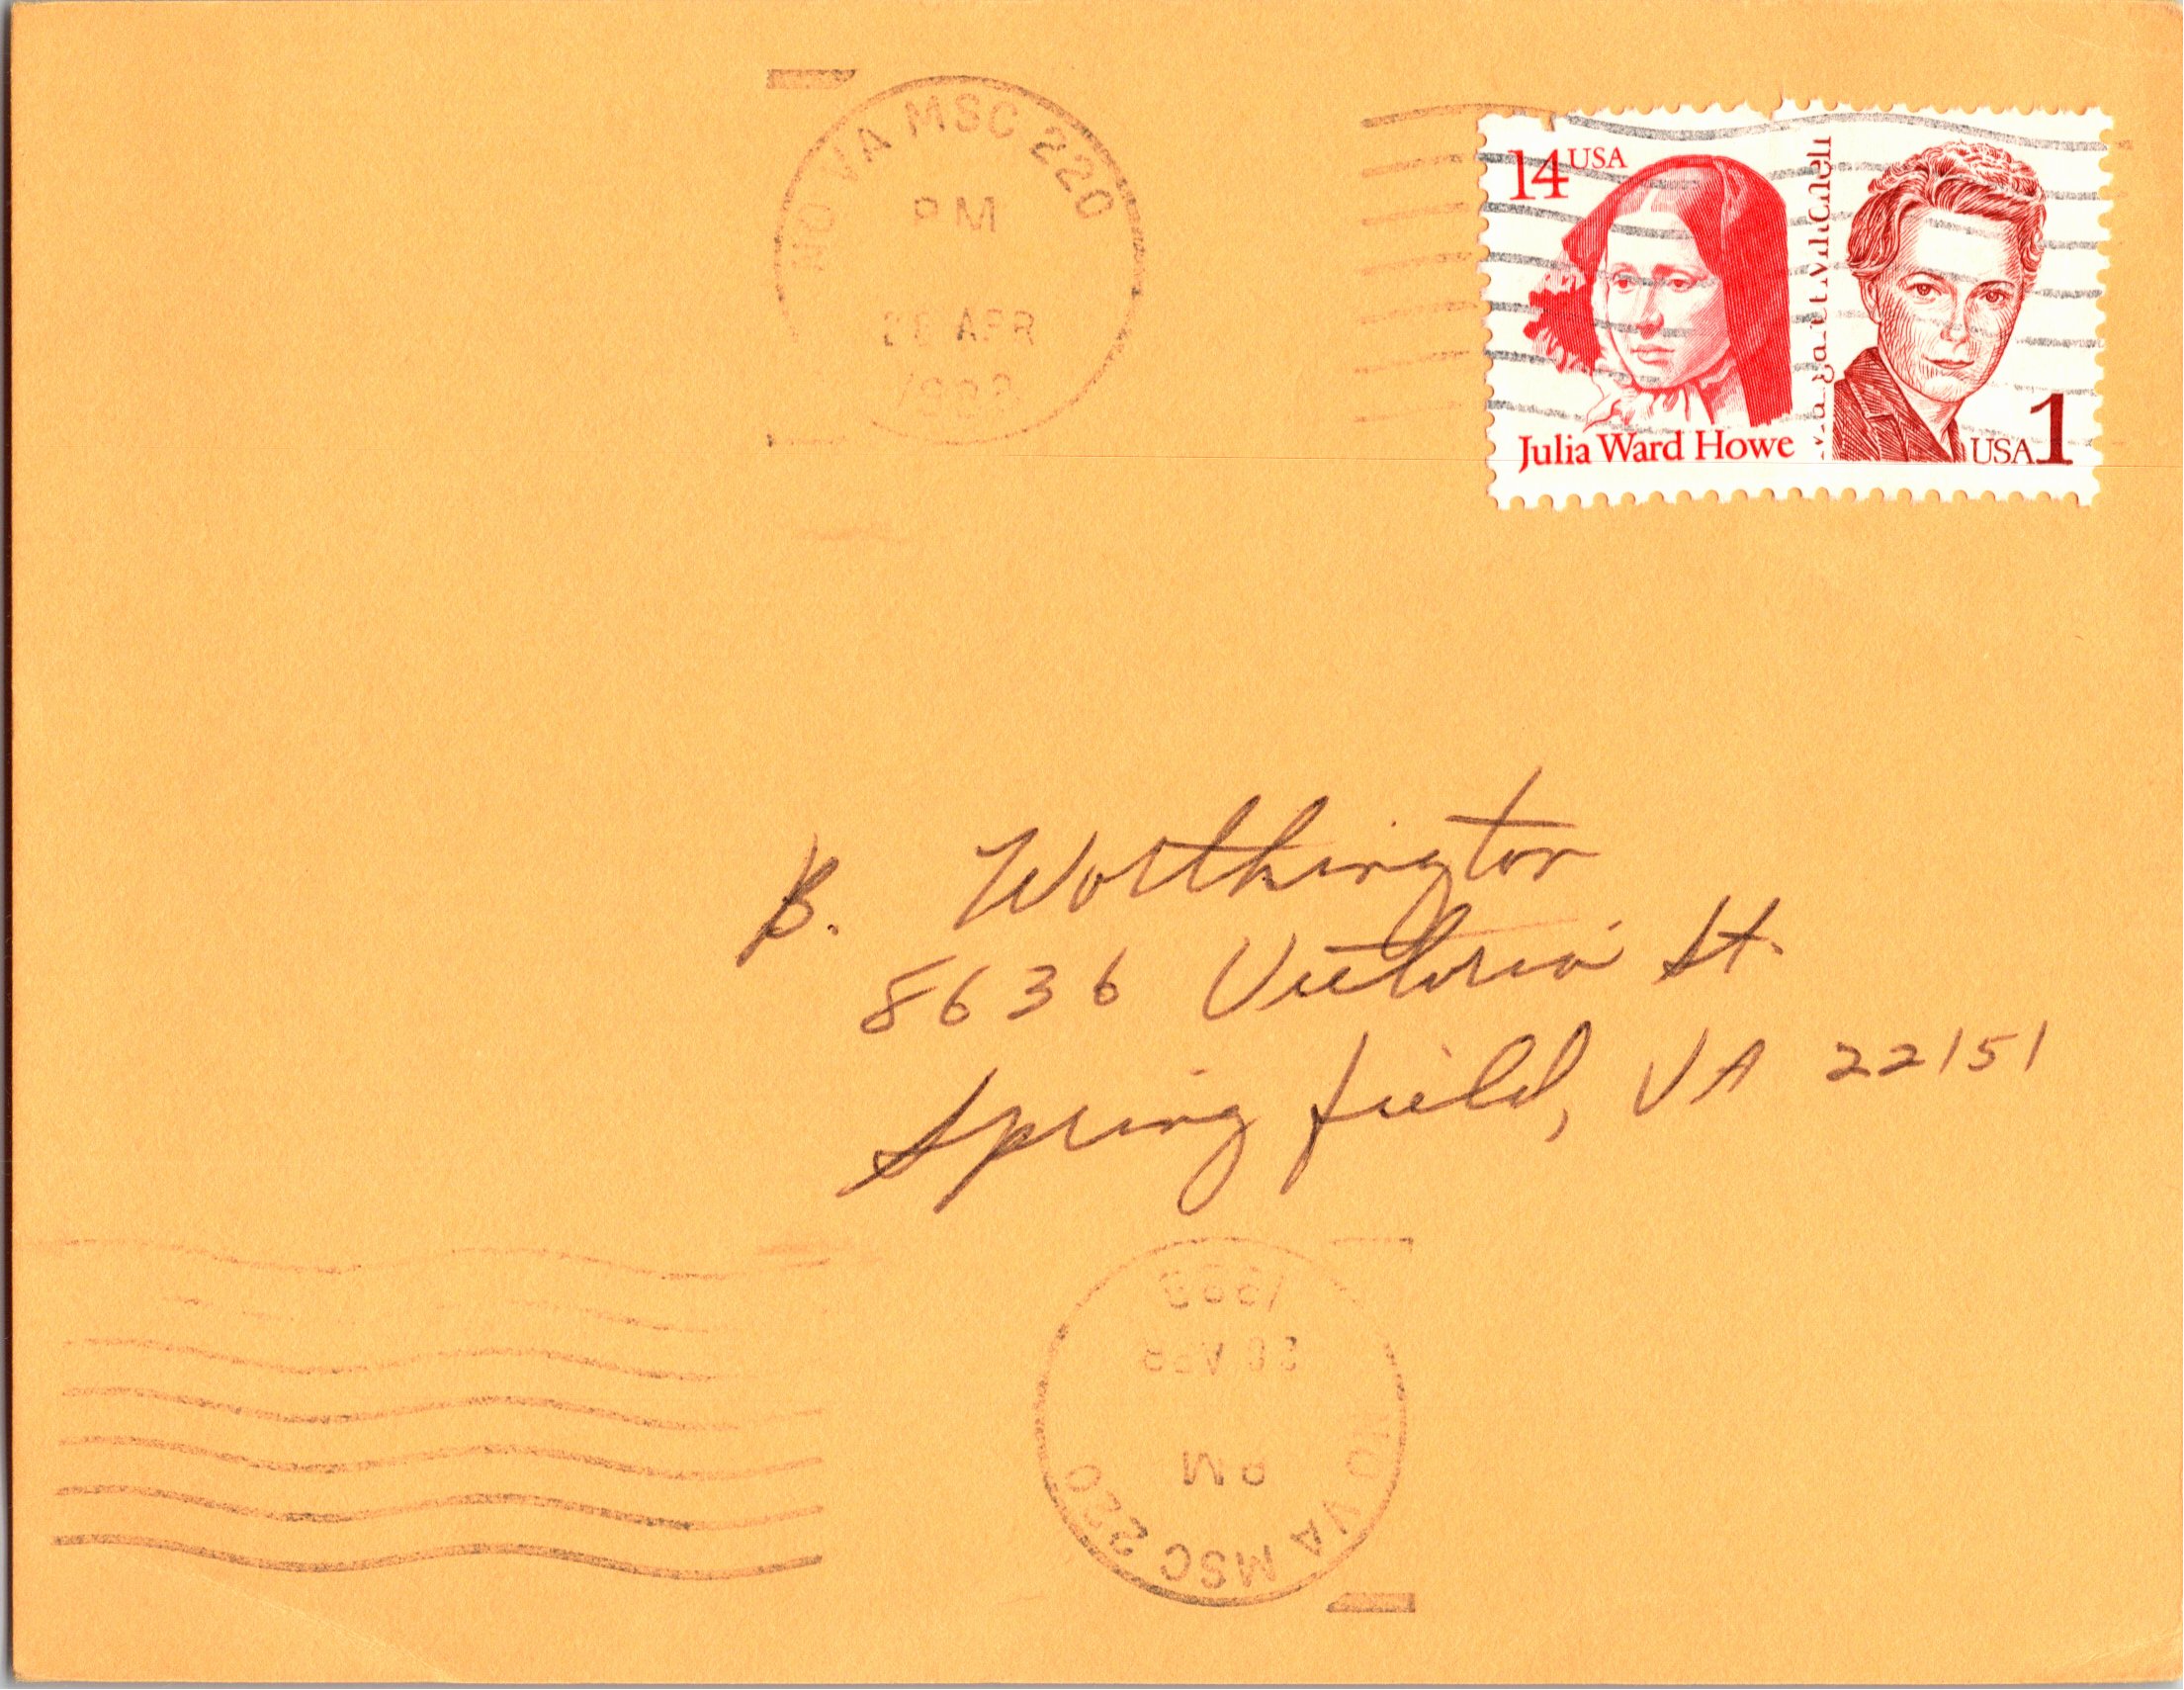 NO VA MSC 220
PM
20 APR
1988
14 USA
Julia Ward Howe
Margaret Mitchell
USA 1
B. Worthington
8636 Victoria St.
Springfield, VA 22151
1988
20 APR
PM
NO VA MSC 220